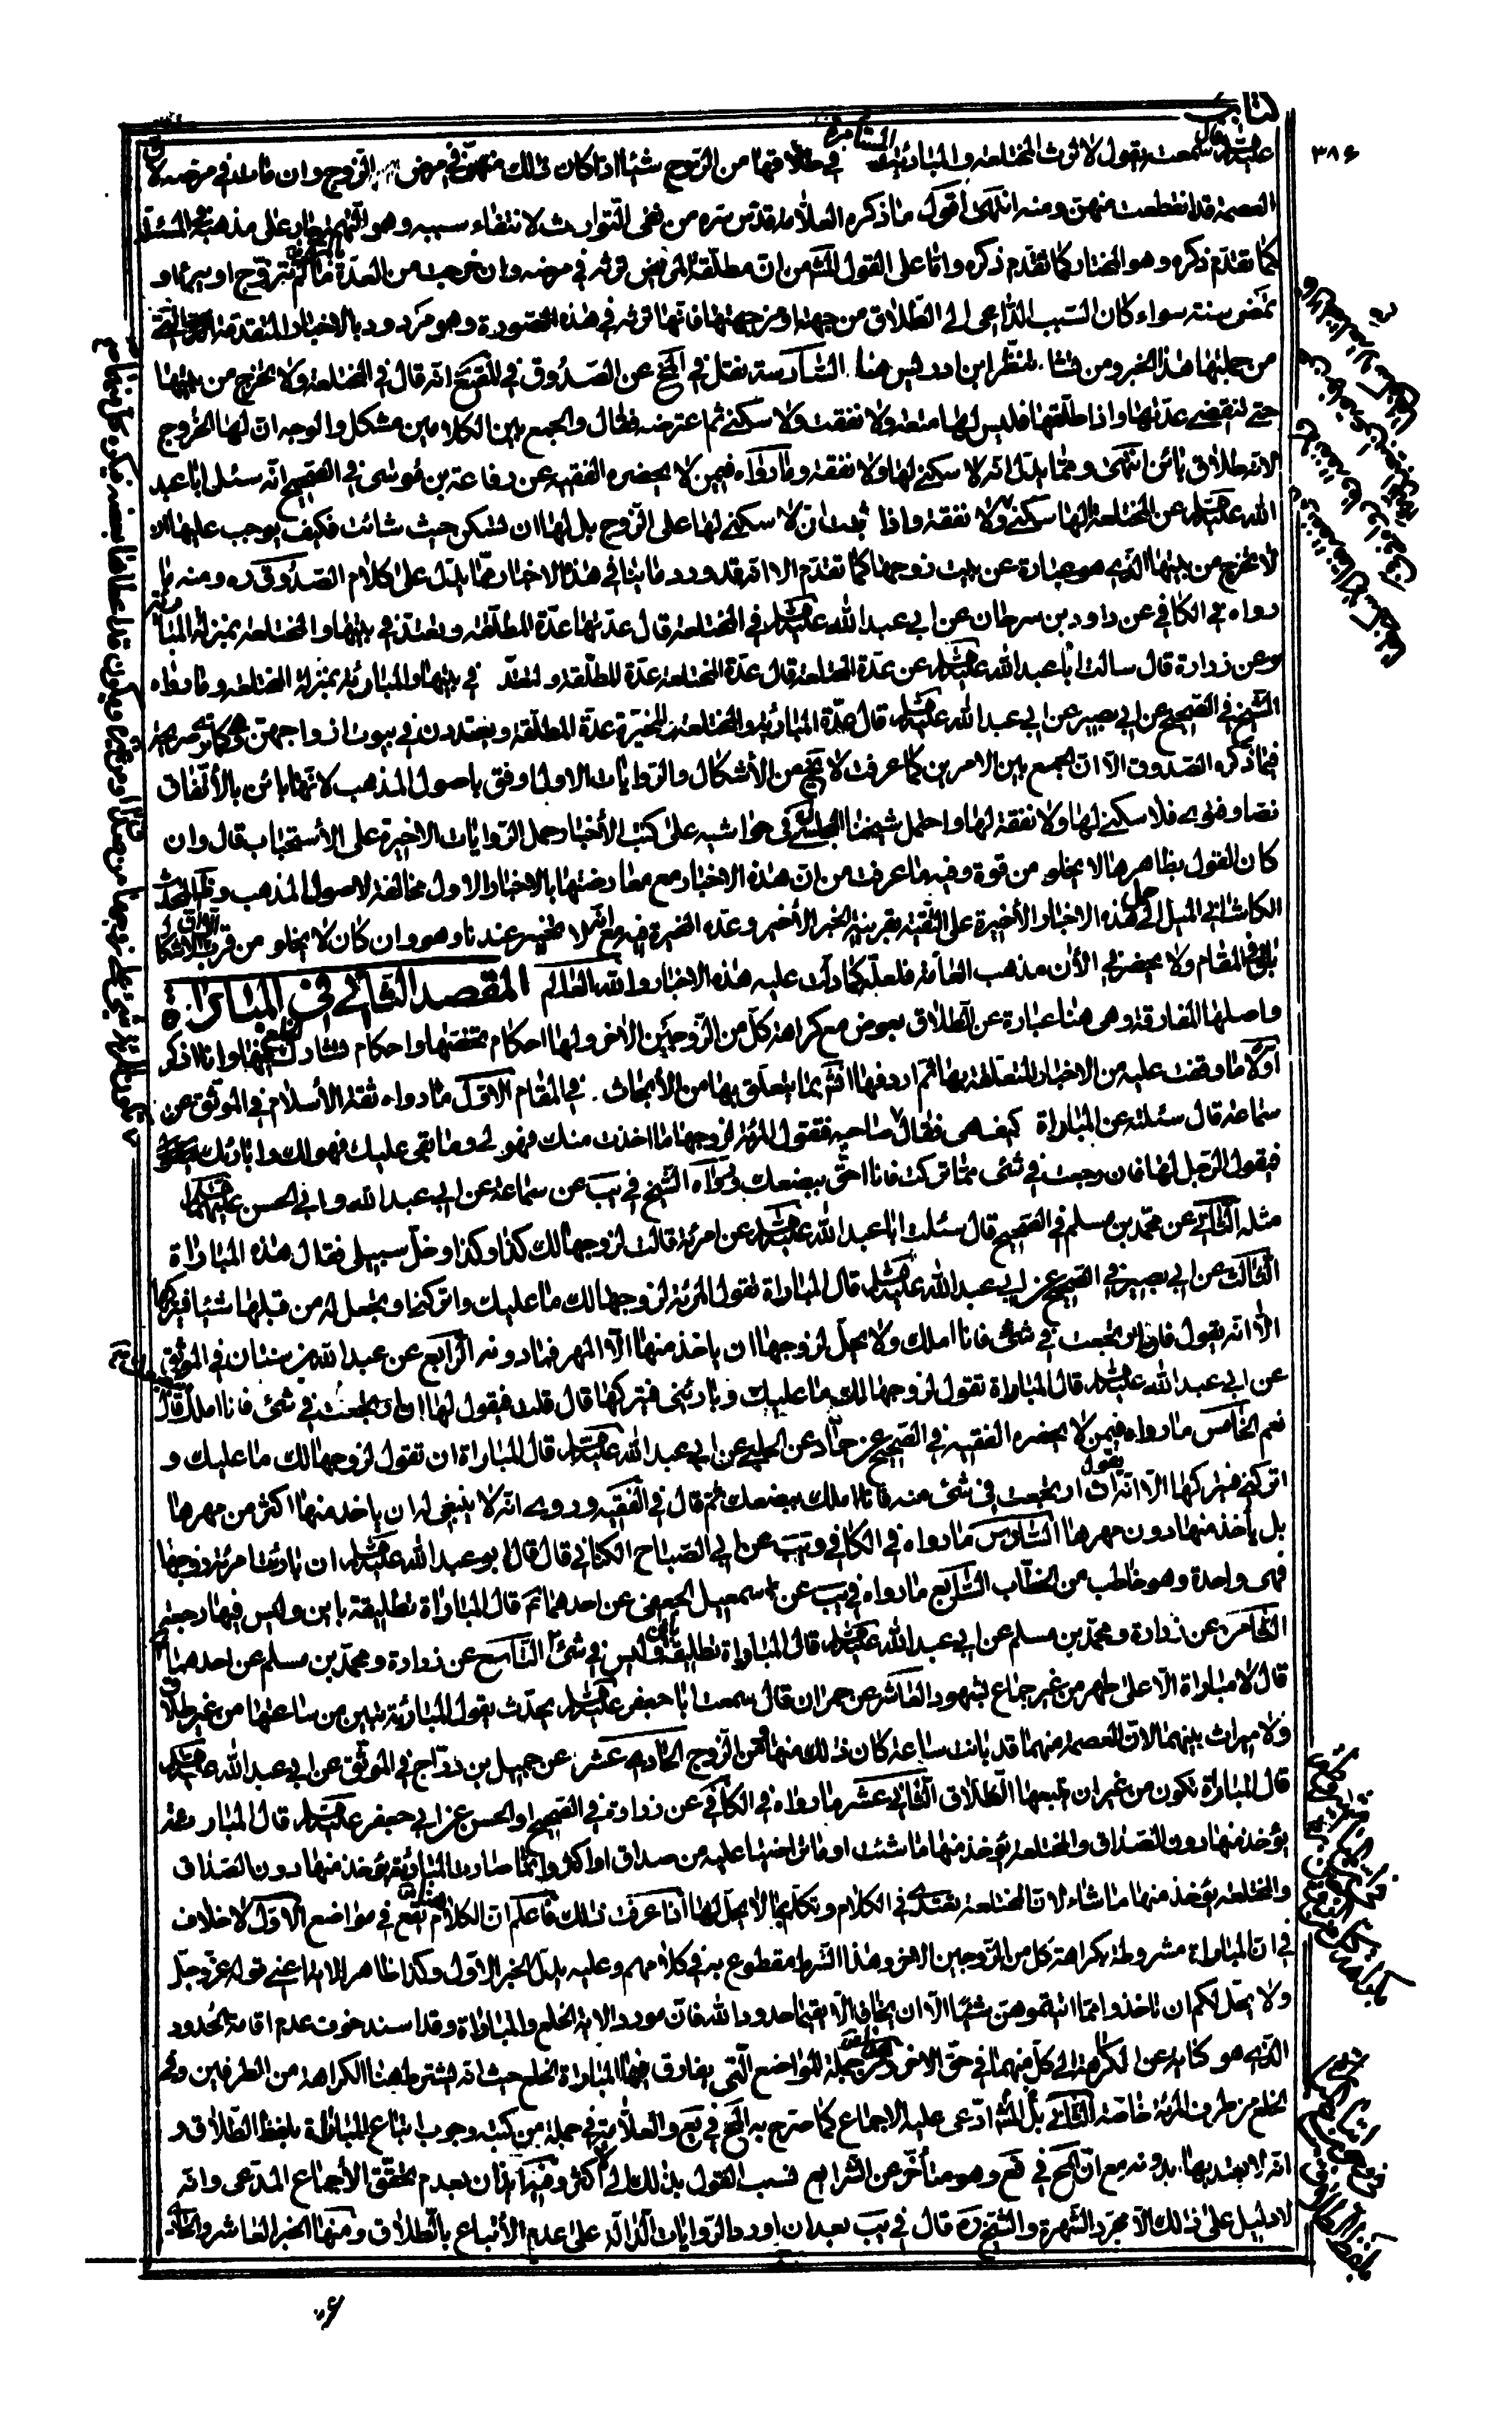 كتاب
٣٨۶
عليه السلم قال سمعته يقول لا ترث المختلعة والمبارئة والمستأمرة في طلاقها من الزوج شيئا اذا كان ذلك منهن في مرض الزوج وان مات في مرضه لان
العصمة قد انقطعت منهن ومنه انتهى اقول ما ذكره العلامة قدس سره من نفى التوارث لانتفاء سببه وهو التهمة جار على مذهبه في المسئلة
كما تقدم ذكره وهو المختار كما تقدم ذكره واما على القول المش من ان مطلقة المريض ترثه في مرضه وان خرجت من العدة ما لم تتزوج او يبرء او
تمضى سنة سواء كان السبب الداعى الى الطلاق من جهته او من جهتها فانها ترثه في هذه الصورة وهو مردود بالاخبار المتقدمة التى
من جملتها هذا الخبر ومن هنا تنظر ابن ادريس هنا. السادسة نقل في المخ عن الصدوق في المقنع انه قال في المختلعة ولا تخرج من بيتها
حتى تنقضى عدتها واذا طلقها فليس لها متعة ولا نفقة ولا سكنى ثم اعترضه فقال والجمع بين الكلامين مشكل والوجه ان لها الخروج
لانه طلاق بائن انتهى ومما يدل انه لا سكنى لها ولا نفقة ما رواه فيمن لا يحضره الفقيه عن رفاعة بن موسى في الصحيح انه سئل ابا عبد
الله عليه السلم عن المختلعة الها سكنى ولا نفقة واذا ثبت ان لا سكنى لها على الزوج بل لها ان تسكن حيث شائت فكيف يوجب عليها ان
لا تخرج من بيتها الذى هو عبارة عن بيت زوجها كما تقدم الا انه قد ورد ما ينافى هذه الاخبار مما يدل على كلام الصدوق ره ومنه ما
رواه في الكافي عن داود بن سرحان عن ابى عبد الله عليه السلم في المختلعة قال عدتها عدة المطلقة وتعتد في بيتها والمختلعة بمنزلة المبارئة
وعن زرارة قال سالت ابا عبد الله عليه السلم عن عدة المختلعة قال عدة المختلعة عدة المطلقة ولتعتد في بيتها والمبارئة بمنزلة المختلعة وما رواه
الشيخ في الصحيح عن ابى بصير عن ابى عبد الله عليه السلم قال عدة المبارئة والمختلعة والمخيرة عدة المطلقة ويعتددن في بيوت ازواجهن وهى كما ترى صريحة
فيما ذكره الصدوق الا ان الجمع بين الامرين كما عرفت لا يخ من الأشكال والروايات الاولى اوفق باصول المذهب لانها بائن بالأتفاق
نصا وفتوى فلا سكنى لها ولا نفقة لها واحتمل شيخنا المجلسى في حواشيه على كتب الأخبار حمل الروايات الاخيرة على الأستحباب قال وان
كان القول بظاهرها لا يخلو من قوة وفيه ما عرفت من ان هذه الاخبار مع معارضتها بالاخبار الاول مخالفة لاصول المذهب وظ المحدث
الكاشانى الميل الى حمل هذه الاخبار الأخيرة على التقية بقرينة الخبر الأخير وعد المخيرة فيه مع انه لا تخيير عندنا وهو وان كان لا يخلو من قرب الا ان الاشكال
باق في المقام ولا يحضرنى الأن مذهب العامة فلعله كما دلت عليه هذه الاخبار والله العالم المقصد الثانى في المباراة
واصلها المفارقة وهى هنا عبارة عن الطلاق بعوض مع كراهة كل من الزوجين الاخر ولها احكام تختصها واحكام تشارك الخلع فيها وانا اذكر
اولا ما وقفت عليه من الاخبار المتعلقة بها ثم اردفها انش بما يتعلق بها من الأبحاث. في المقام الاول ما رواه ثقة الأسلام في الموثق عن
سماعة قال سئلته عن المباراة كيف هى فقال تقول المرئة لزوجها ما اخذت منك فهو لى وما بقى عليك فهو لك وابارئك
فيقول الرجل لها فان رجعت في شئ مما تركت فانا احق ببضعك ورواه الشيخ في يب عن سماعة عن ابى عبد الله وابى الحسن عليهما السلم
مثله الثانى عن محمد بن مسلم في الصحيح قال سئلت ابا عبد الله عليه السلم عن امرئة قالت لزوجها لك كذا وكذا وخل سبيلى فقال هذه المباراة
الثالث عن ابى بصير في الصحيح عن ابى عبد الله عليه السلم قال المباراة تقول المرئة لزوجها لك ما عليك واتركنى او تجعل له من قبلها شيئا فيتركها
الا انه يقول فان ارتجعت في شئ فانا املك ولا يحل لزوجها ان ياخذ منها الا المهر فما دونه الرابع عن عبد الله بن سنان في الموثق
عن ابى عبد الله عليه السلم قال المباراة تقول لزوجها لك ما عليك وبارئنى فيتركها قال قلت فيقول لها ان ارتجعت في شئ فانا املك قال
نعم الخامس ما رواه فيمن لا يحضره الفقيه في الصحيح عن حماد عن الحلبى عن ابى عبد الله عليه السلم قال المباراة ان تقول لزوجها لك ما عليك و
اتركنى فيتركها الا انه يقول ان ارتجعت في شئ منه فانا املك ببضعك ثم قال في الفقيه وروى انه لا ينبغى له ان ياخذ منها اكثر من مهرها
بل يأخذ منها دون مهرها السادس ما رواه في الكافي ويب عن ابى الصباح الكنانى قال قال ابو عبد الله عليه السلم ان بارئت امرئة زوجها
فهى واحدة وهو خاطب من الخطاب السابع ما رواه في يب عن اسمعيل الجعفى عن احدهما ثم قال المباراة تطليقة باين وليس فيها رجعة
الثامن عن زرارة ومحمد بن مسلم عن ابى عبد الله عليه السلم قال المباراة تطليقة باين وليس في شئ التاسع عن زرارة ومحمد بن مسلم عن احدهما
قال لا مباراة الا على طهر من غير جماع بشهود العاشر عن حمران قال سمعت ابا جعفر عليه السلم يحدث يقول المبارئة تبين من ساعتها من غير طلاق
ولا ميراث بينهما لان العصمة منهما قد بانت ساعة كان ذلك منها ومن الزوج الحادى عشر عن جميل بن دراج في الموثق عن ابى عبد الله عليه السلم
قال المباراة تكون من غير ان يتبعها الطلاق الثانى عشر ما رواه في الكافي عن زرارة في الصحيح او الحسن عن ابى جعفر عليه السلم قال المبارئة
يؤخذ منها دون الصداق والمختلعة يؤخذ منها ما شئت او ما تراضيا عليه من صداق او اكثر وانما صارت المبارئة يؤخذ منها دون الصداق
والمختلعة يؤخذ منها ما شاء لان المختلعة تعتدى في الكلام وتكلم بما لا يحل لها اذا عرفت ذلك فاعلم ان الكلام يقع في مواضع الاول لا خلاف
في ان المباراة مشروطة بكراهة كل من الزوجين الاخر وهذا الشرط مقطوع به في كلامهم وعليه يدل الخبر الاول وكذا ظاهر الاية اعنى قوله عز وجل
ولا يحل لكم ان تاخذوا مما اتيتموهن شيئا الا ان يخافا الا يقيما حدود الله فان مورد الاية الخلع والمباراة وقد اسند خوف عدم اقامة الحدود
الذى هو كناية عن الكراهة الى كل منهما في حق الاخر وهذا من جملة المواضع التى يفارق فيها المباراة الخلع حيث انه يشترط هنا الكراهة من الطرفين وفى
الخلع من طرف المرئة خاصة الثانى بل المش ادعى عليه الاجماع كما صرح به المح في يع والعلامة في جملة من كتبه وجوب اتباع المباراة بلفظ الطلاق و
انه لا يعتد بها بدونه مع ان المح في فع وهو متأخر عن الشرايع نسب القول بذلك الى الأكثر وفيه ايذان بعدم تحقق الأجماع المدعى وانه
لا دليل على ذلك الا مجرد الشهرة والشيخ ره قال في يب بعد ان اورد الروايات الدالة على عدم الأتباع بالطلاق ومنها الخبر العاشر والحادى